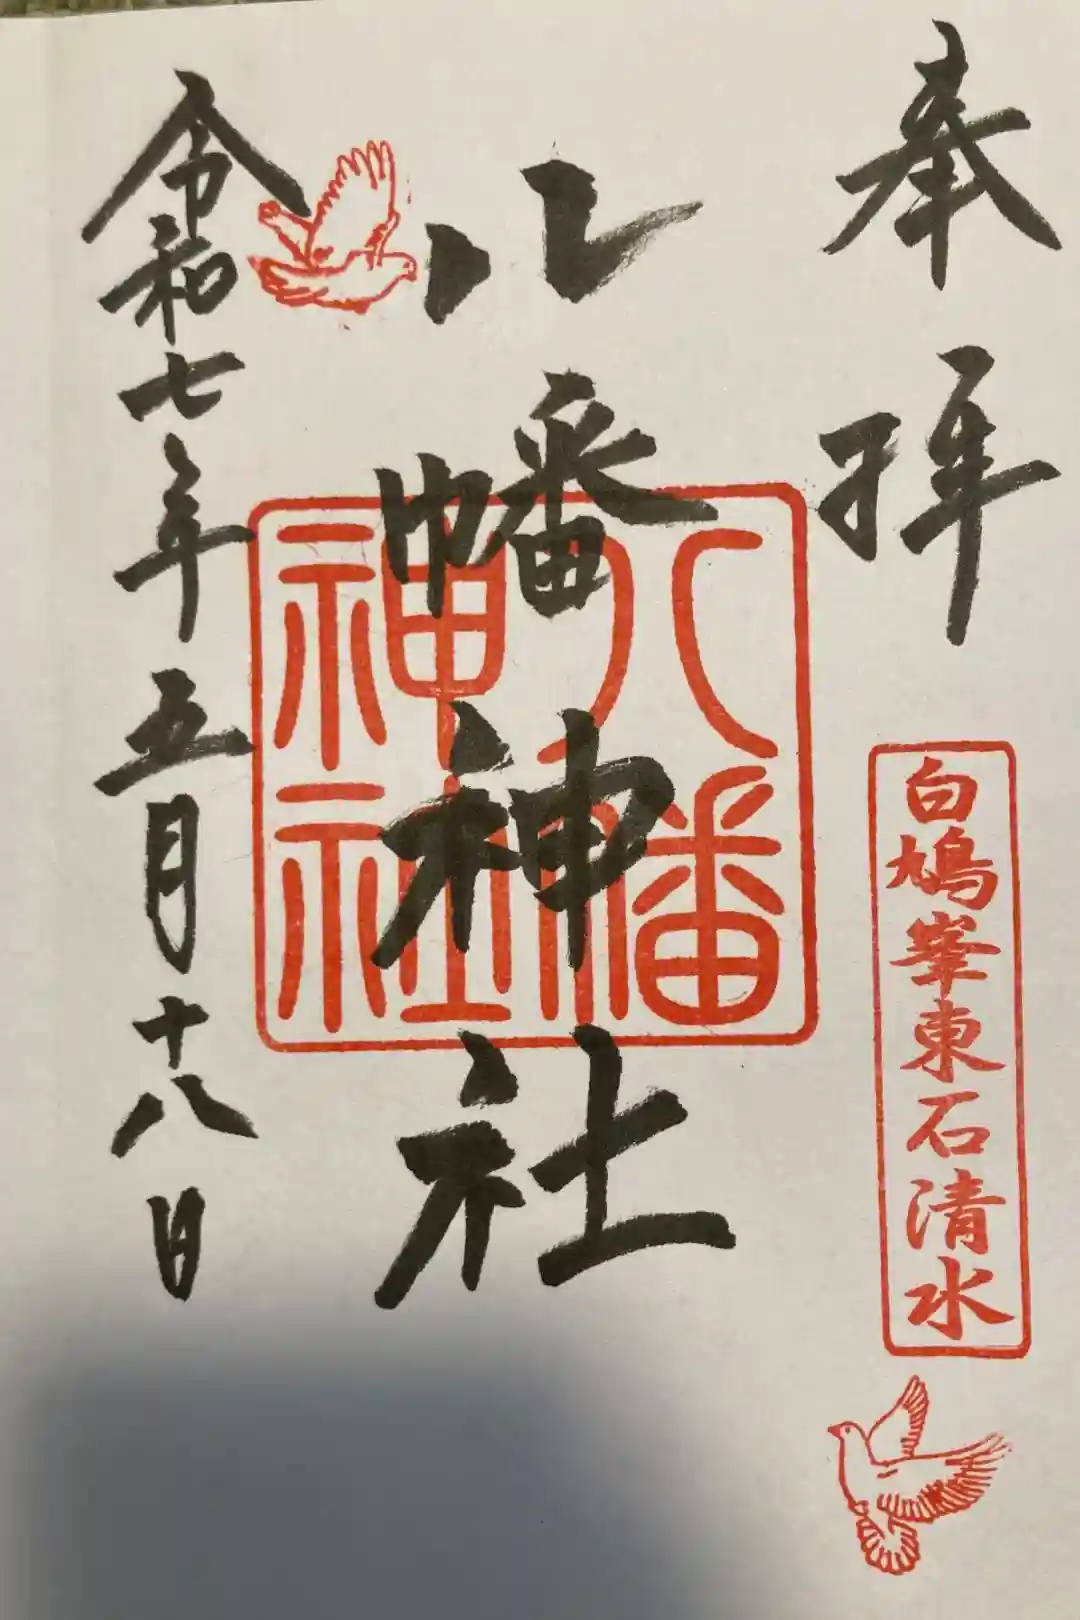 奉拝
白鳩峯東石清水
八幡神社
八幡神社
令和七年五月十八日